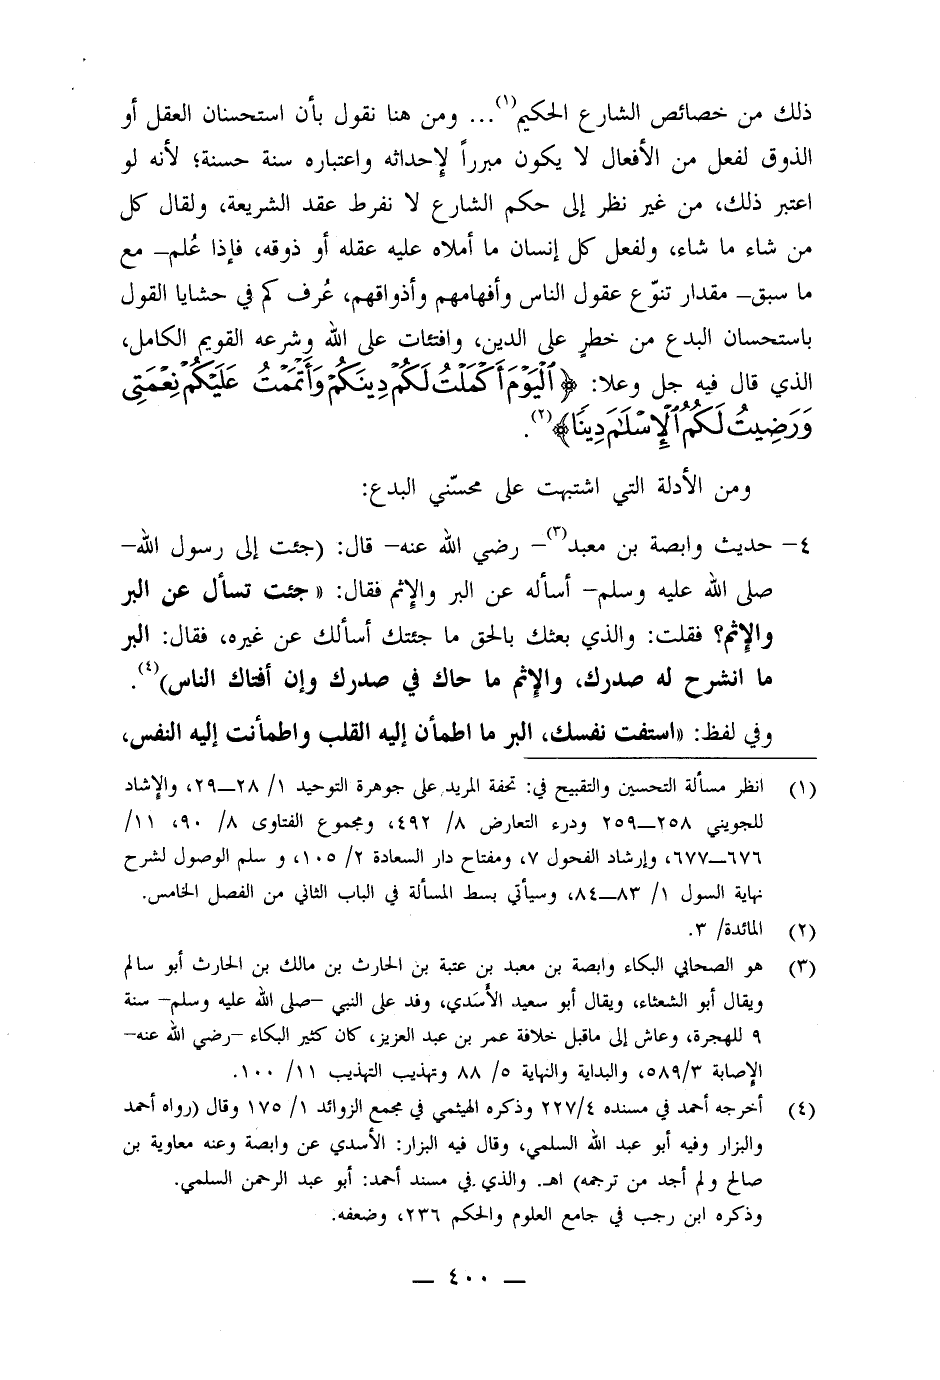 ذلك من خصائص الشارع الحكيم(١)... ومن هنا نقول بأن استحسنان العقل أو
الذوق لفعل من الأفعال لا يكون مبرراً لإحداثه واعتباره سنة حسنة؛ لأنه لو
اعتبر ذلك، من غير نظر إلى حكم الشارع لا نفرط عقد الشريعة، ولقال كل
من شاء ما شاء، ولفعل كل إنسان ما أملاه عليه عقله أو ذوقه، فإذا عُلم– مع
ما سبق– مقدار تنوّع عقول الناس وأفهامهم وأذواقهم، عُرف كم في حشايا القول
باستحسان البدع من خطرٍ على الدين، وافتئات على الله وشرعه القويم الكامل،
الذي قال فيه جل وعلا: ﴿ ٱلْيَوْمَ أَكْمَلْتُ لَكُمْ دِينَكُمْ وَأَتْمَمْتُ عَلَيْكُمْ نِعْمَتِى
وَرَضِيتُ لَكُمُ ٱلْإِسْلَٰمَ دِينًا﴾(٢).
ومن الأدلة التي اشتبهت على محسّني البدع:
٤– حديث وابصة بن معبد(٣)– رضي الله عنه– قال: (جئت إلى رسول الله–
صلى الله عليه وسلم– أسأله عن البر والإثم فقال: « جئت تسأل عن البر
والإثم؟ فقلت: والذي بعثك بالحق ما جئتك أسألك عن غيره، فقال: البر
ما انشرح له صدرك، والإثم ما حاك في صدرك وإن أفتاك الناس)(٤).
وفي لفظ: «استفت نفسك، البر ما اطمأن إليه القلب واطمأنت إليه النفس،
(١) انظر مسألة التحسين والتقبيح في: تحفة المريد على جوهرة التوحيد ١/ ٢٨—٢٩، والإشاد
للجويني ٢٥٨—٢٥٩ ودرء التعارض ٨/ ٤٩٢، ومجموع الفتاوى ٨/ ٩٠، ١١/
٦٧٦—٦٧٧، وإرشاد الفحول ٧، ومفتاح دار السعادة ٢/ ١٠٥، و سلم الوصول لشرح
نهاية السول ١/ ٨٣—٨٤، وسيأتي بسط المسألة في الباب الثاني من الفصل الخامس.
(٢) المائدة/ ٣.
(٣) هو الصحابي البكاء وابصة بن معبد بن عتبة بن الحارث بن مالك بن الحارث أبو سالم
ويقال أبو الشعثاء، ويقال أبو سعيد الأسَدي، وفد على النبي –صلى الله عليه وسلم– سنة
٩ للهجرة، وعاش إلى ماقبل خلافة عمر بن عبد العزيز، كان كثير البكاء –رضي الله عنه–
الإصابة ٥٨٩/٣، والبداية والنهاية ٥/ ٨٨ وتهذيب التهذيب ١١/ ١٠٠.
(٤) أخرجه أحمد في مسنده ٢٢٧/٤ وذكره الهيثمي في مجمع الزوائد ١/ ١٧٥ وقال (رواه أحمد
والبزار وفيه أبو عبد الله السلمي، وقال فيه البزار: الأسدي عن وابصة وعنه معاوية بن
صالح ولم أجد من ترجمه) اهـ. والذي في مسند أحمد: أبو عبد الرحمن السلمي.
وذكره ابن رجب في جامع العلوم والحكم ٢٣٦، وضعفه.
— ٤٠٠ —